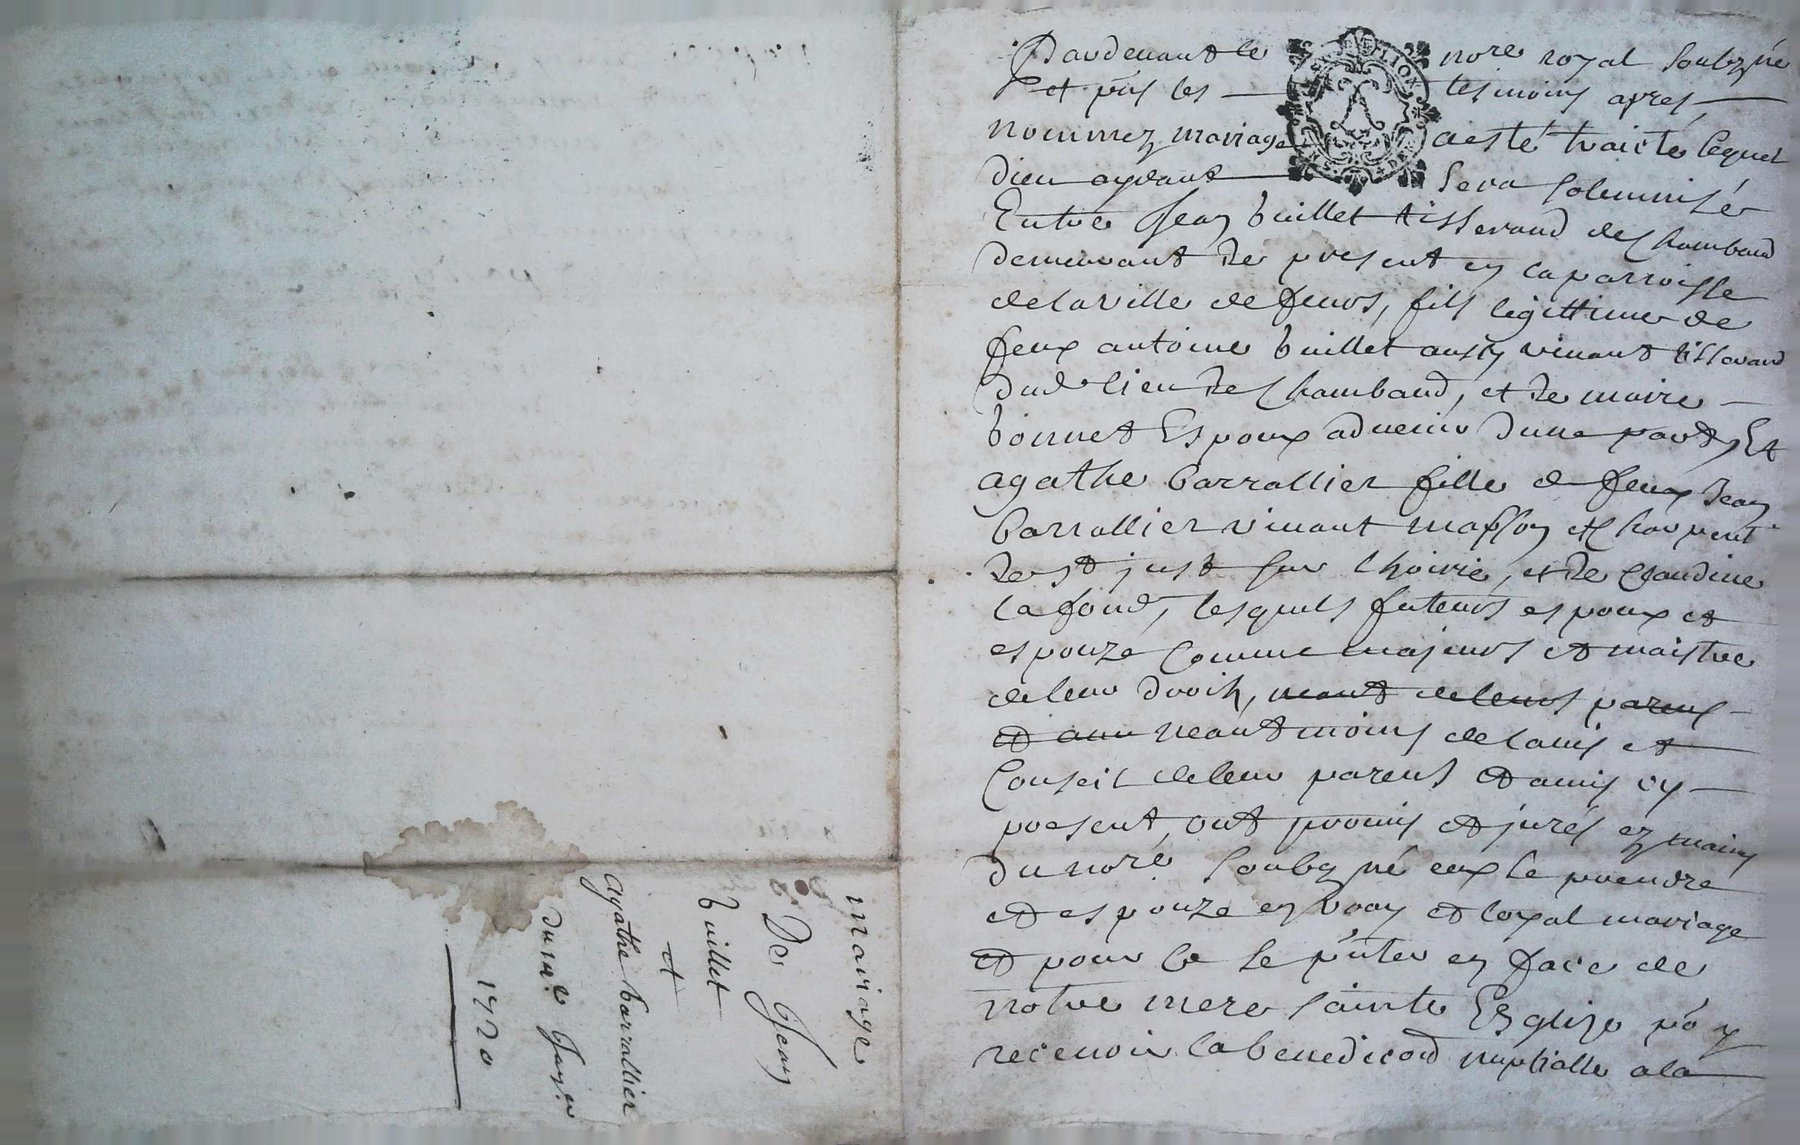 Pardevant le nore royal soubzné
et pñs les tesmoins apres
nommez mariage a esté traicté lequel
dieu aydant sera solemnisé
Entre Jean buillet tisserand de Chambaud
demeurant de present en la parroisse
de la ville de feurs, fils legittime de
feux antoine buillet aussy vivant tisserand
dud lieu de Chambaud, et de marie
bonnet Espoux advenir dune part, Et
agathe barrallier fille de feux Jean
barrallier vivant masson et Charpent
de st just sur Lhoire, et de Claudine
la fond, lesquels futeurs espoux et
espouze comme majeurs et maistre
de leur droit, neant de leurs parens
et neantmoins de lavis et
Conseil de leur parens et amis cy
present, ont promis et jurés ez mains
du noré soubzné eux le prendre
et espouze en vray et loyal mariage
et pour ce se pñter en face de
notre mere sainte Esglize po y
recevoir la benediconō nuptialle a la
mairiage
De Jean
buillet
et
agathe barrallier
du
1720